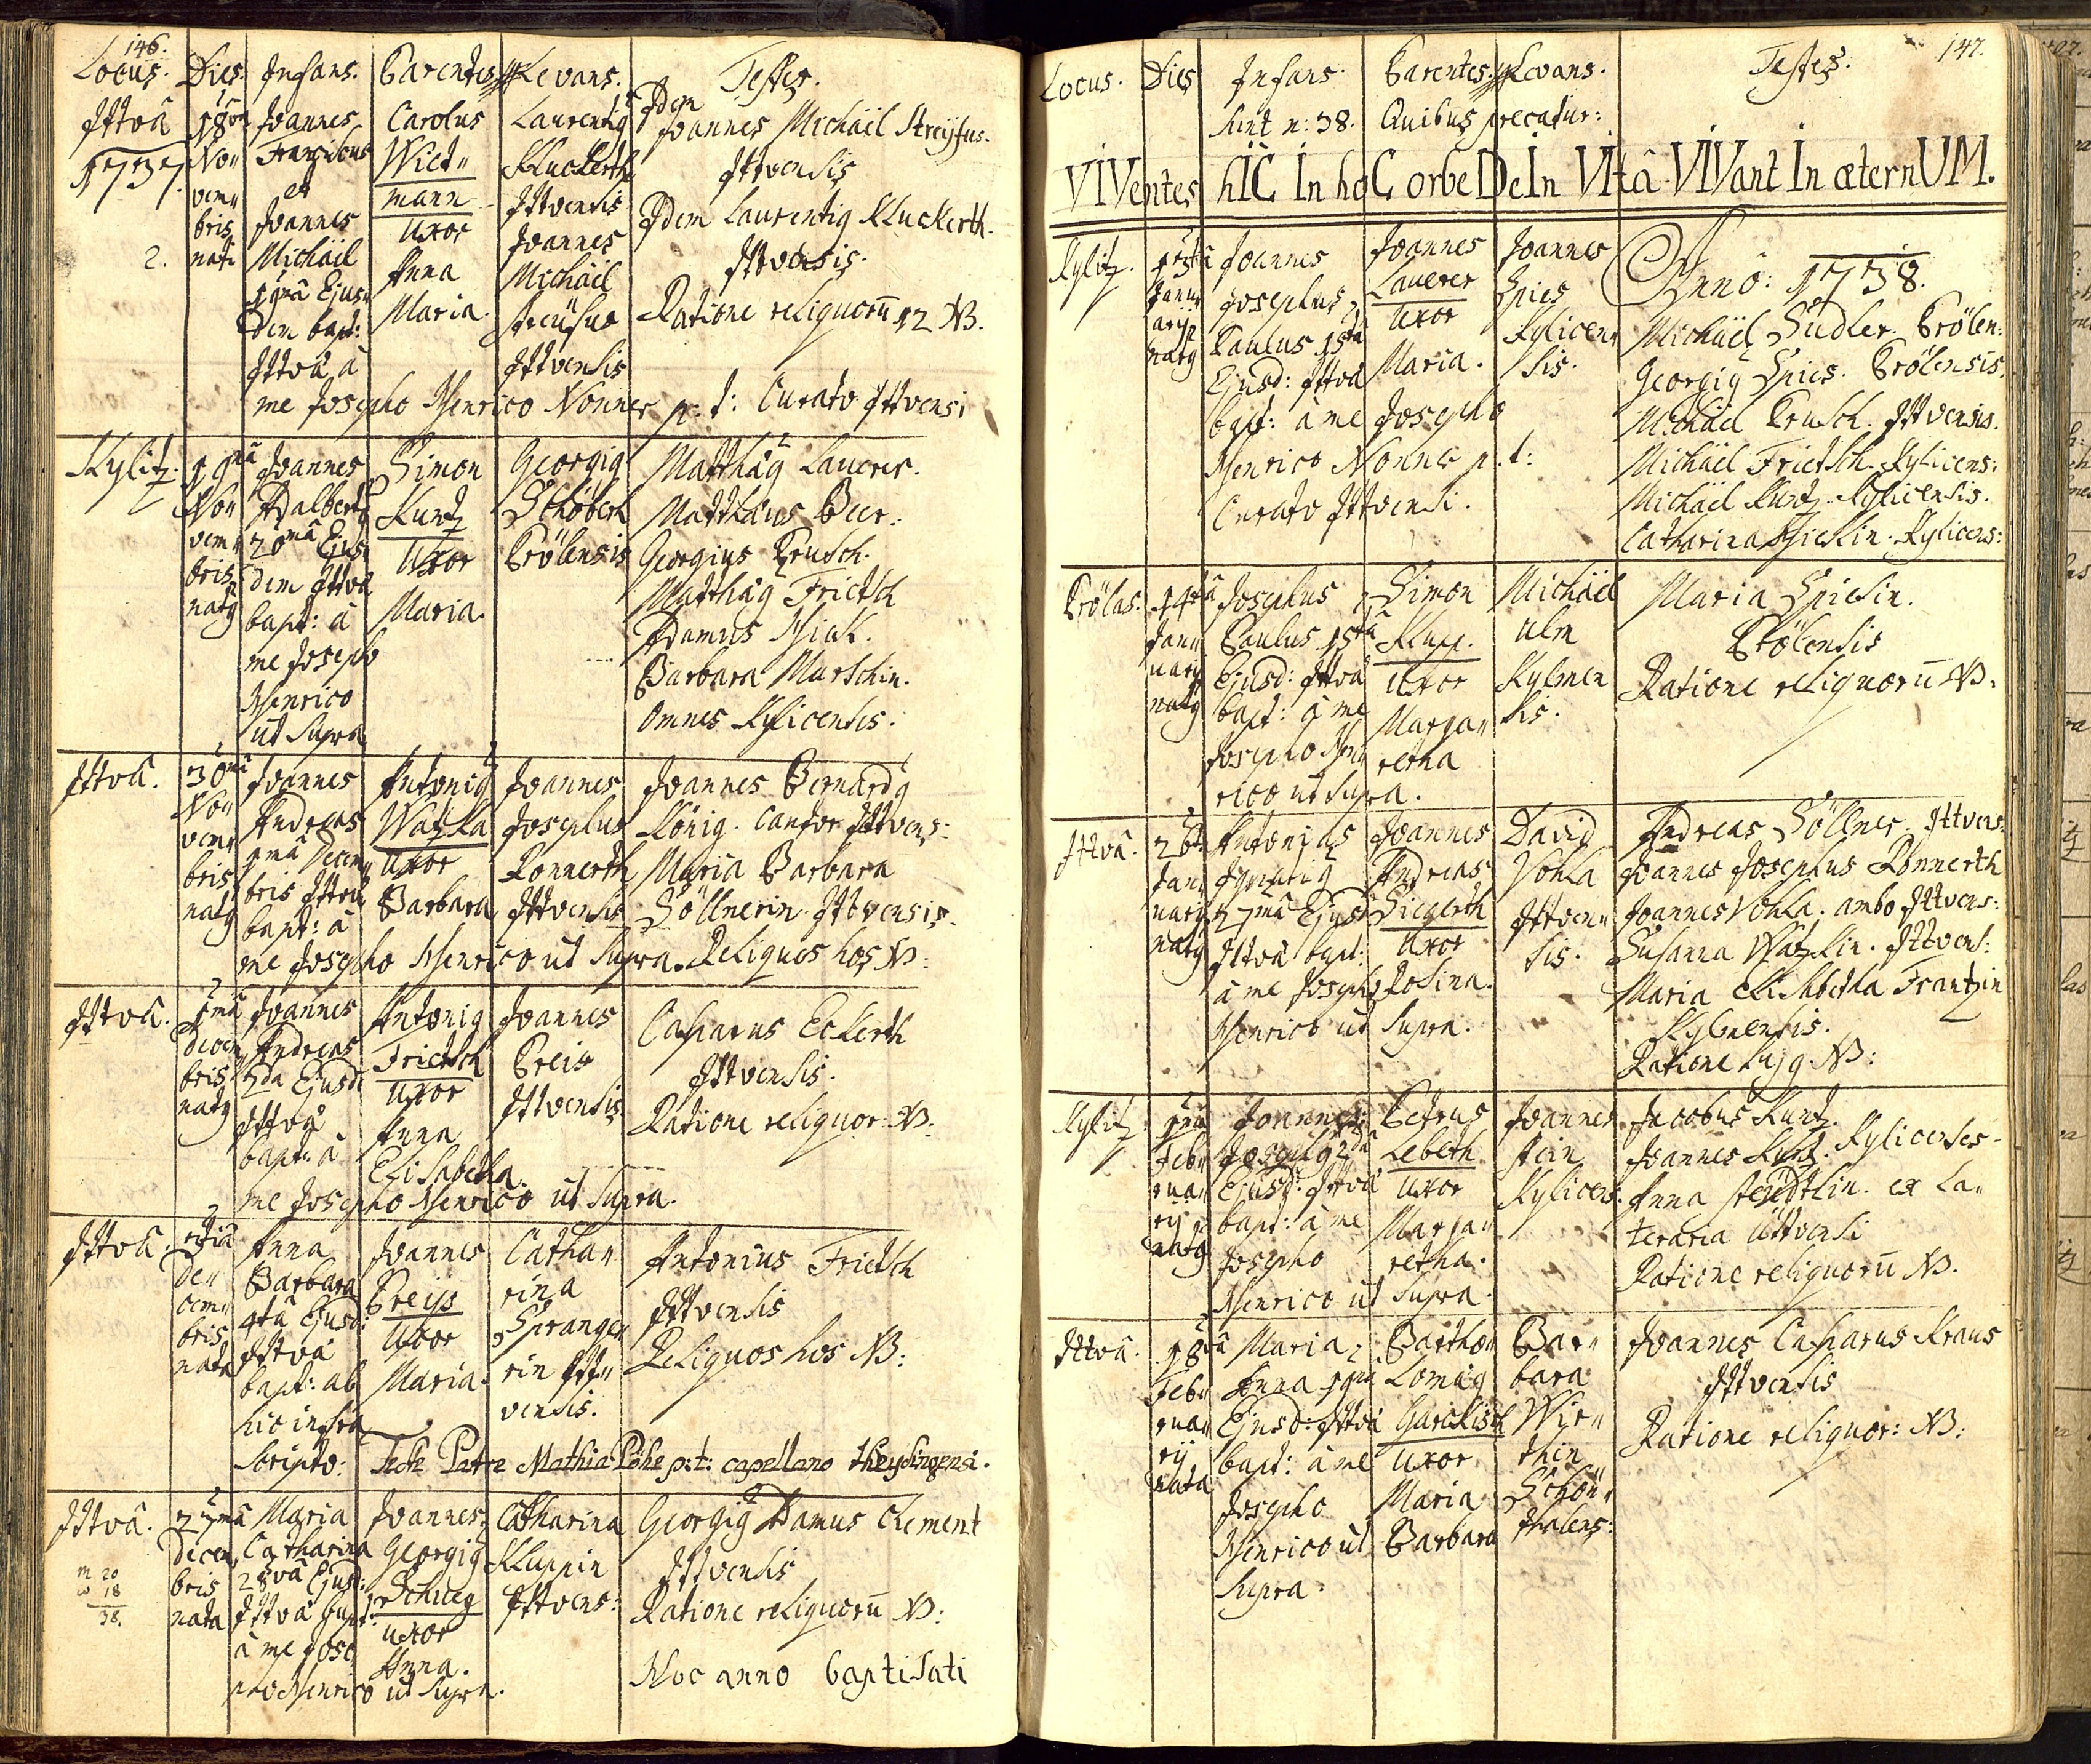 146.
Locus. Dies. Infans. Parentes. Levans. Testes.
Ittvâ
1737.
2.
18va
No„
vem„
bris
nati
Joannes
Franciscus
et
Joannes
Michäel
19nâ Ejus„
dem bapt:
Ittvâ â
Carolus
Widt„
mann
Uxor
Anna
Maria.
Laurentig
Kluckerth
Ittvensis
Joannes
Michäel
Ittvensis
Idem
Joannes Michäel Streÿfus.
Ittvensis
Idem Laurentig Kluckerth.
Ittvensis.
Ratione reliquorū 12 NB.
me Josepho Henrico Nonner p: t: Curato Ittvensi
Kylitz.
19nâ
No„
vem„
bris
natg
Joannes
Adalbertg
20mâ Ejus„
dem Ittvâ
bapt: â
me Josepho
Henrico
ut supra
Simon
Kurtz
Uxor
Maria.
Georgig
Schöberl
Prölensis
Matthäg Lauerer.
Matthäus Beer.
Georgius Prusch.
Matthäg Frietsch
Adamus Hiek.
Barbara Murschin.
Omnes Kylicensis.
Ittvâ.
30mâ
No„
vem„
bris
natg
Joannes
Andreas
1mâ Decem„
bris Ittvâ
bapt: â
Antonig
Watzka
Uxor
Barbara
Joannes
Josephus
Ronnerth
Ittvensis
Joannes Bernardg
König. Cantor Ittvens:
Maria Barbara
Söllnerin. Ittvensis.
me Josepho Henrico ut supra. Reliquos hos NB:
Ittvâ.
1mâ
Decem
bris
natg
Joannes
Andreas
2da Ejusd:
Ittvâ
bapt: â
Antonig
Frietsch
Uxor
Anna
Elisabetha.
Joannes
Preis
Ittvensis
Casparus Eckerth
Ittvensis.
Ratione reliquor: NB:
me Josepho Henrico ut supra.
Ittvâ.
3tiâ
De„
cem„
bris
nata
Anna
Barbara
4tâ Ejusd:
Ittvâ
bapt: ab
hic infra
scripto:
Joannes
Preÿs
Uxor
Maria.
Catha„
rina
Spranger„
rin Itt„
vensis.
Antonius Frietsch
Ittvensis
Reliquos hos NB:
Teste Patre Mathia Pöhe p: t: capellano theysingensi.
Ittvâ.
m 20
w 18
38.
27mâ
Decem„
bris
nata
Maria
Catharina
28vâ Ejusd:
Ittvâ bapt:
â me Jose„
pho Henrico ut supra.
Joannes
Georgig
Schueg
Uxor
Anna.
Catharina
Kluppin
Ittvens:
Georgig Damus Clement
Ittvensis
Ratione reliquorū NB:
Hoc anno baptisati
147.
Locus. Dies Infans. Parentes. Levans. Testes.
sunt n: 38. Quibus precatur:
VIVentes hIC In hoC orbe DeIn VItâ VIVant In æternUM.
Kylitz.
Janu„
arij
natg
Joannes
Josephus
Paulus 15tâ
Ejusd: Ittvâ
bapt: â me Josepho
Henrico Nonner p. t:
Curato Ittvensi.
Joannes
Lauerer
Uxor
Maria.
Joannes
Spies
Kylicen„
sis.
Annô: 1738.
Michäel Sudler. Prölen:
Georgig Spies. Prölensis.
Michäel Prusch. Ittvensis.
Michäel Frietsch. Kylicens:
Michäel Kurtz. Kylicensis.
Catharina Hiekin. Kylicens:
Prölas.
14tâ
Jan„
uarij
natg
Josephus
Paulus 15tâ
Ejusd: Ittvâ
bapt: â me
Josepho Hen„
rico ut supra.
Simon
Klupp.
Uxor
Marga„
retha
Michäel
Ulm
Kylmen
sis.
Maria Spiesin.
Prölensis
Ratione reliquorū NB.
Ittvâ.
26.
Jan„
uarij
natg
Antonius
Ignatig
27mâ Ejusd:
Ittvâ bapt:
â me Josepho
Henrico ut supra.
Joannes
Andreas
Siegerth
Uxor
Rosina.
David
Vohla
Ittven„
sis.
Andreas Söllner. Ittvens:
Joannes Josephus Ronnerth
Joannes Vohla. ambo Ittvens:
Susanna Watzkin. Ittvens:
Maria Elisabetha Frantzin
Kylmensis.
Ratione hujg NB:
Kylitz
1mâ
Feb„
rua„
rij
natg
Joannes
Josephg 2dâ
Ejusd: Ittvâ
bapt: â me
Josepho
Henrico ut supra.
Petrus
Lebeth
Uxor
Marga„
retha.
Joannes
Stein
Kylicens:
Jacobus Kurtz.
Joannes Kurtz. Kylicenses.
Anna Steidtlin. ex La„
teraria Ittvensi
Ratione reliquorū NB.
Ittvâ.
18vâ
Feb„
rua„
rij
nata
Maria
Anna 19nâ
Ejusd: Ittvâ
bapt: â me
Josepho
Henrico ut
supra.
Bartho„
lomeig
Garckisch
Uxor
Maria
Barbara
Bar„
bara
Wir„
thin
Schön„
thalens:
Joannes Casparus Kraus
Ittvensis
Ratione reliquor: NB: